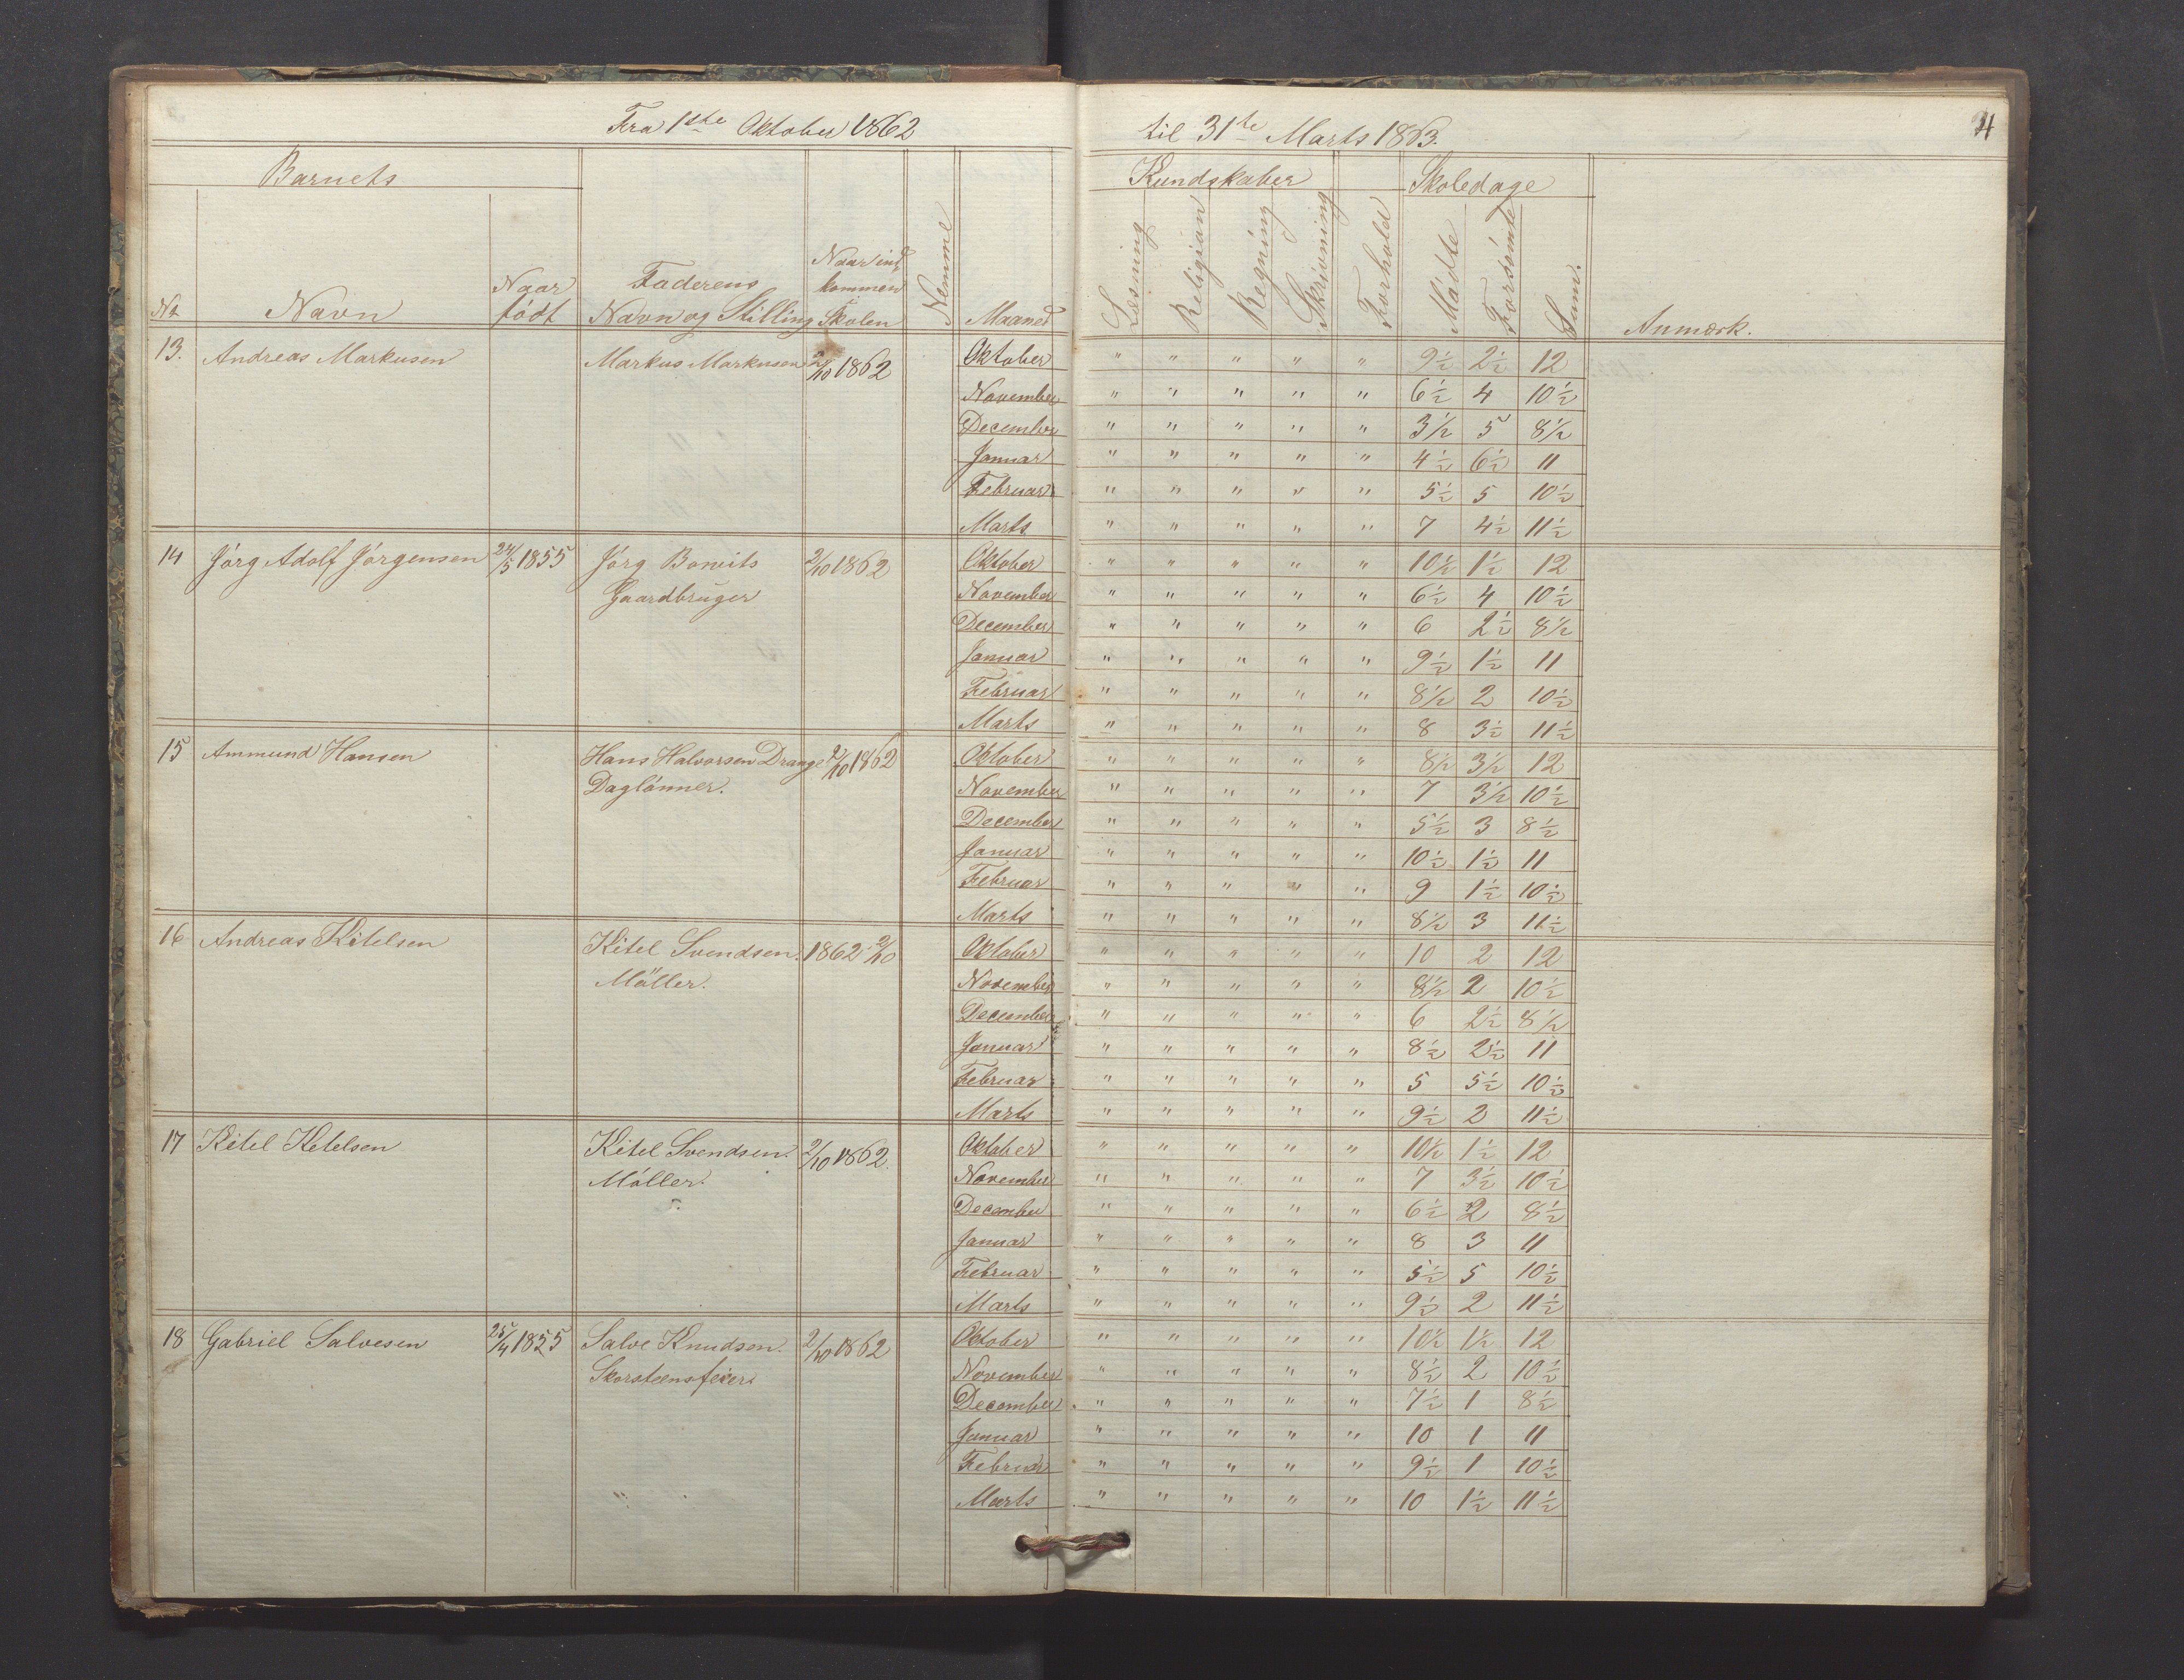 Fra 1ste Oktober 1862 til 31te Marts 1863. 4
Barnets Kundskaber Skoledage
No Navn Naar födt Faderens Navn og Stilling Naar ind kommen Skolen Nemme Maaned Læsning Religion Regning Skrivning Forhold Mödte Forsömte Sum. Anmærk.
13. Andreas Markusen Markus Markusen 2/10 1862 Oktober " " " " " 9½ 2½ 12
November " " " " " 6½ 4 10½
December " " " " " 3½ 5 8½
Januar " " " " " 4½ 6½ 11
Februar " " " " " 5½ 5 10½
Marts " " " " " 7 4½ 11½
14 Jörg Adolf Jörgensen 24/5 1855 Jörg Bomits 2/10 1862 Oktober " " " " " 10½ 1½ 12
Gaardbruger November " " " " " 6½ 4 10½
December " " " " " 6 2½ 8½
Januar " " " " " 9½ 1½ 11
Februar " " " " " 8½ 2 10½
Marts " " " " " 8 3½ 11½
15 Ammund Hansen Hans Halvorsen Drange 2/10 1862 Oktober " " " " " 8½ 3½ 12
Daglönner. November " " " " " 7 3½ 10½
December " " " " " 5½ 3 8½
Januar " " " " " 10½ 1½ 11
Februar " " " " " 9 1½ 10½
Marts " " " " " 8½ 3 11½
16 Andreas Kitelsen Kitel Svendsen. 1862 2/10 Oktober " " " " " 10 2 12
Möller. November " " " " " 8½ 2 10½
December " " " " " 6 2½ 8½
Januar " " " " " 8½ 2½ 11
Februar " " " " " 5 5½ 10½
Marts " " " " " 9½ 2 11½
17 Kitel Ketelsen Kitel Svendsen. 2/10 1862. Oktober " " " " " 10½ 1½ 12
Möller. November " " " " " 7 3½ 10½
December " " " " " 6½ 2 8½
Januar " " " " " 8 3 11
Februar " " " " " 5½ 5 10½
Marts " " " " " 9½ 2 11½
18 Gabriel Salvesen 25/4 1855 Salve Knudsen. 2/10 1862 Oktober " " " " " 10½ 1½ 12
Skorsteensfeier November " " " " " 8½ 2 10½
December " " " " " 7½ 1 8½
Januar " " " " " 10 1 11
Februar " " " " " 9½ 1 10½
Marts " " " " " 10 1½ 11½